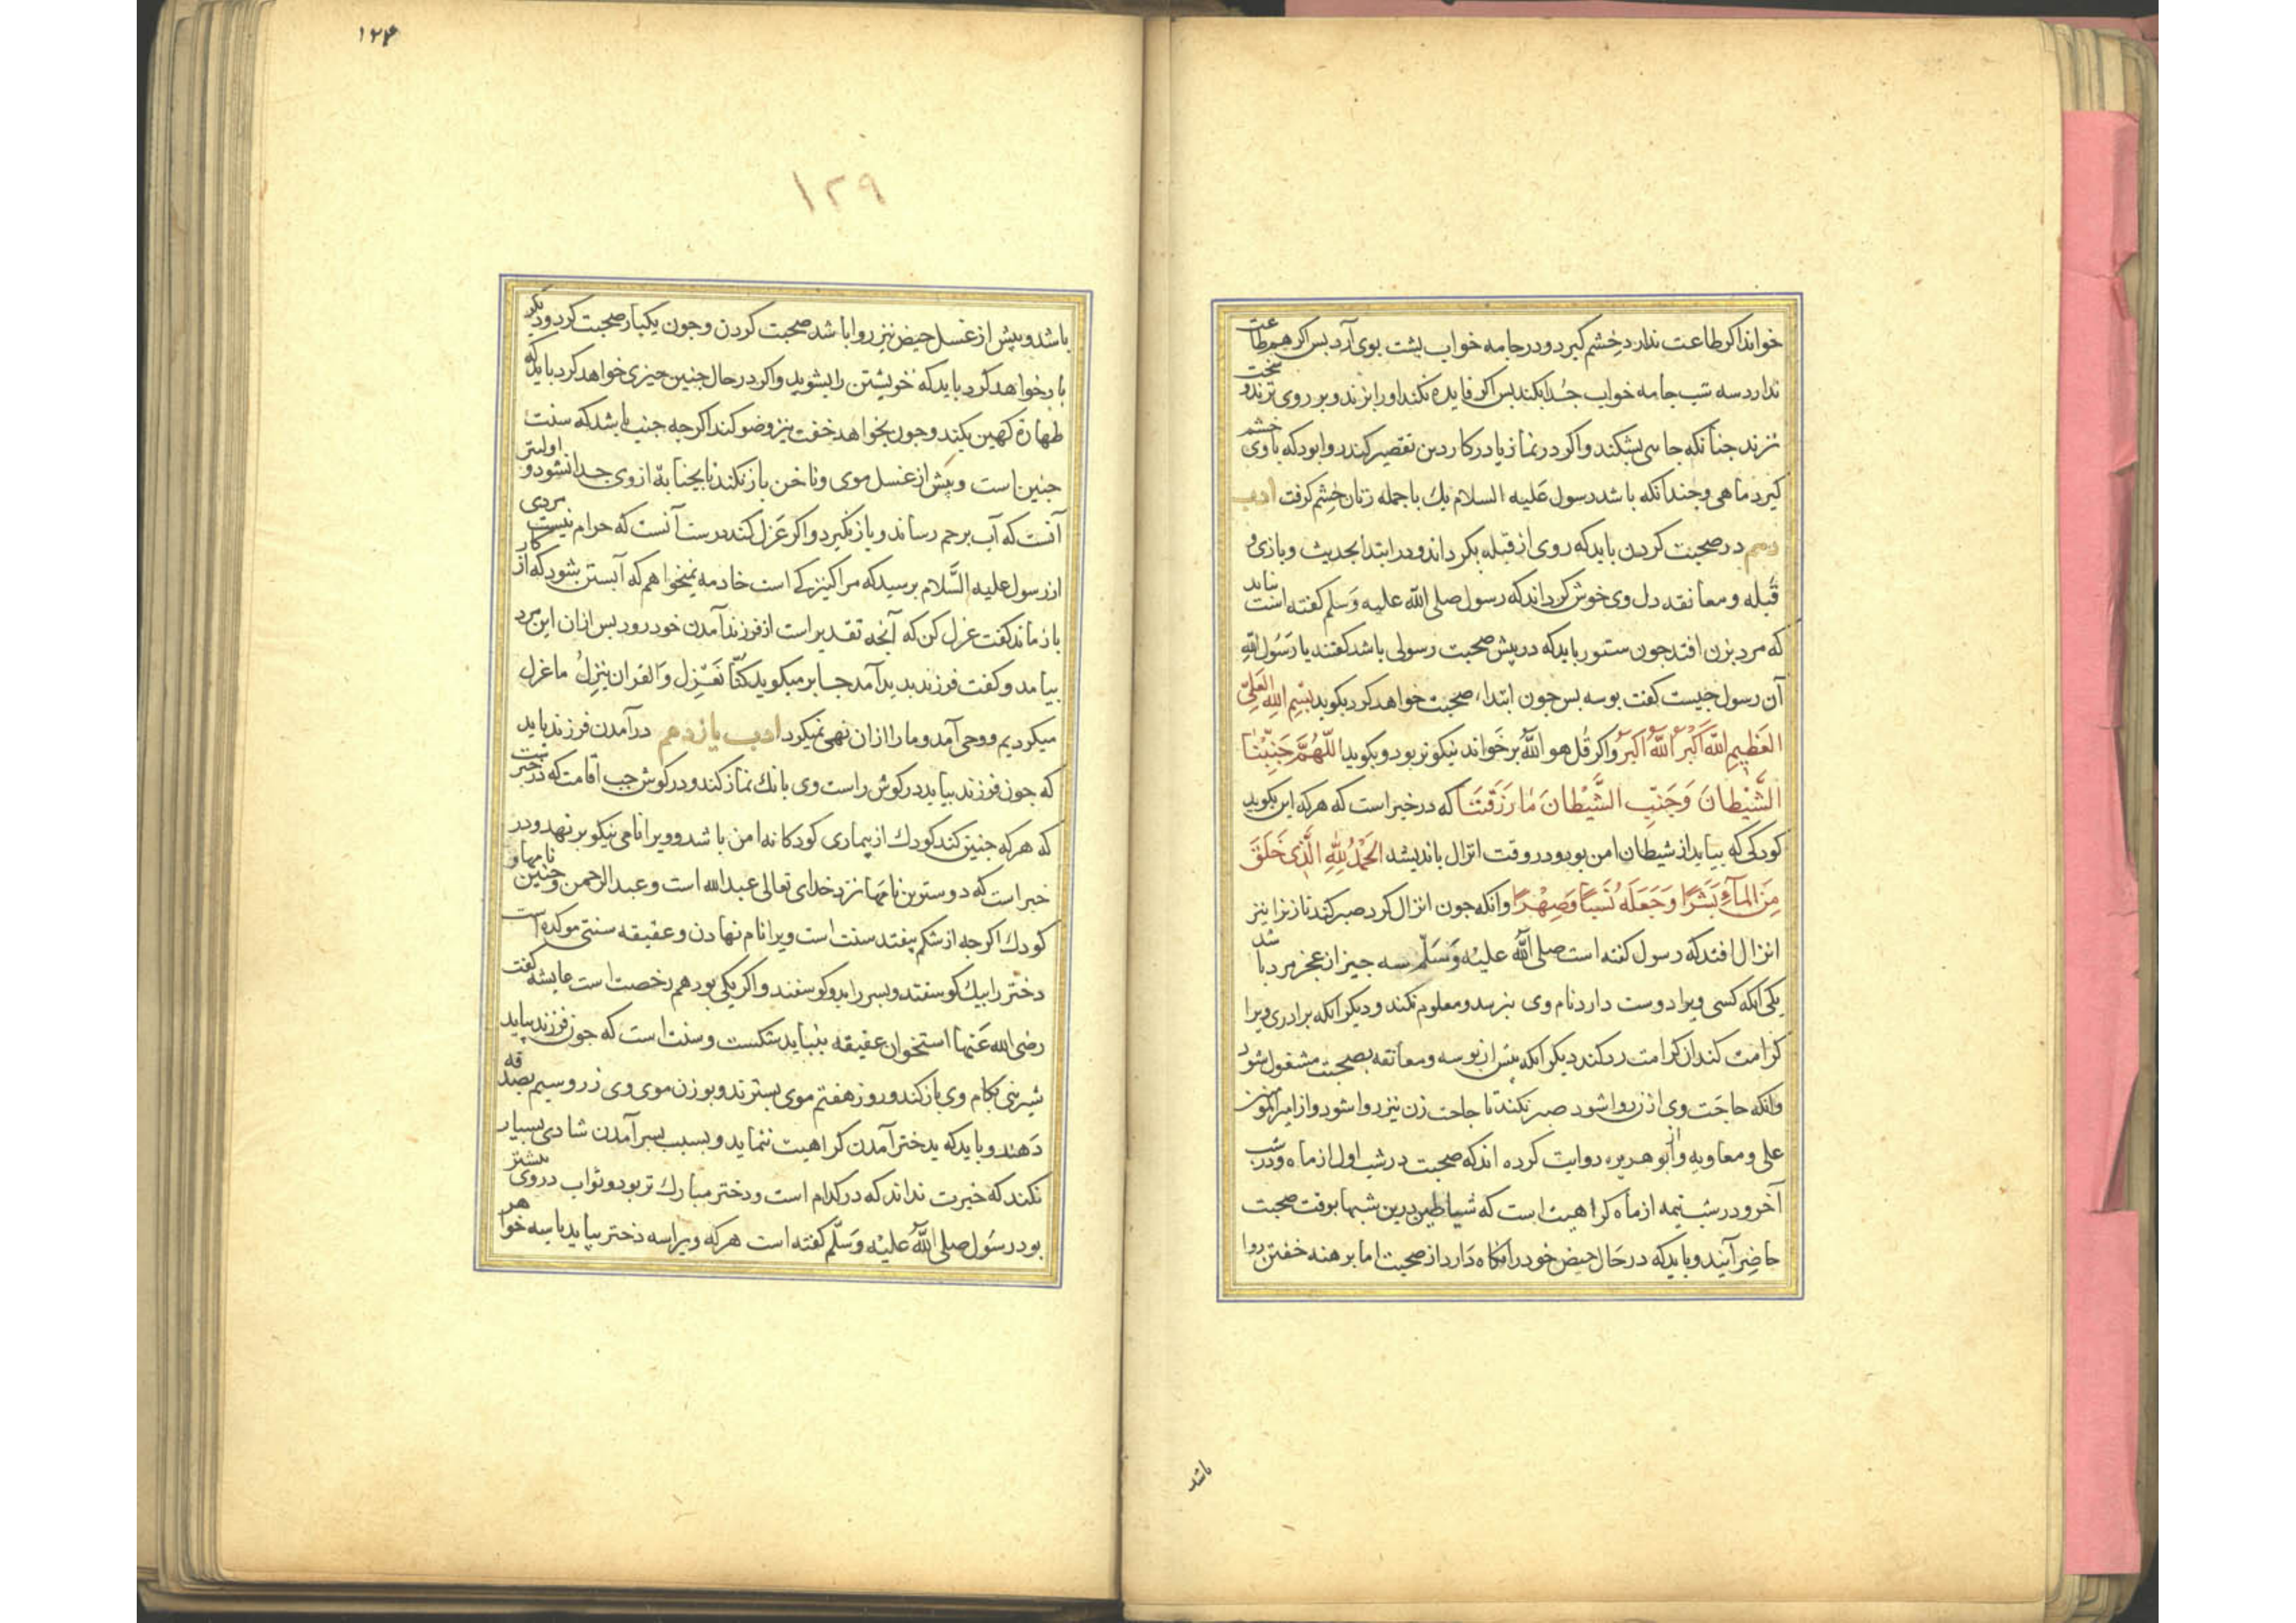 خواند اکر طاعت ندارد خشم کیرد و در جامه خواب پشت بوی آرد بس اکر هم طاعت
ندارد سه شب جامه خواب جدا بکند بس اکر فایده نکند او را بزند و بر روی نزند و سخت
نزند جنانکه جایی بشکند و اکر در نماز یا در کار دین تقصیر کند روا بود که با وی خشم
کیرد ماهی و جندانکه باشد رسول علیه السلام یك ماه با جمله زنان خشم کرفت ادب
دهم در صحبت کردن باید که روی از قبله بکرداند و در ابتدا بحدیث و بازی و
قُبله و معانقه دل وی خوش کرداند که رسول صلی الله علیه وسلم کفته است نباید
که مرد بزن افتد جون ستور باید که در پیش صحبت رسولی باشد کفتند یا رَسُول الله
آن رسول جیست کفت بوسه بس جون ابتداء صحبت خواهد کرد بکوید بِسْمِ اللهِ العَلِیّ
العَظِیمِ اللهُ اَکْبَرُ اللهُ اَکبَرُ و اکر قُل هو اللهُ برخواند نیکوتر بود و بکوید اللّهُمَّ جَنِّبْنَا
الشَّیْطانَ وَجَنِّبِ الشَّیْطانَ مٰا رَزَقْتَنَا که در خبر است که هر که این بکوید
کودکی که بیاید از شیطان امن بود و در وقت انزال باندیشد الحَمْدُ لِلّهِ الَّذِی خَلَقَ
مِنَ المآءِ بَشَرًا وَجَعَلَهُ نَسَبًا وَصِهْرًا و انکه جون انزال کرد صبر کند تا زن را نیز
انزال افتد که رسول کفته است صلی الله علیه وَسَلّم سه جیز از عجز مرد باشد
یکی انکه کسی ویرا دوست دارد نام وی نپرسد و معلوم نکند و دیکر انکه برادری ویرا
کرامت کند ان کرامت رد کند دیکر انکه پیش از بوسه و معانقه بصحبت مشغول شود
وانکه حاجَت وی از زن روا شود صبر نکند تا حاجت زن نیز روا شود و از امیر المومنین
علی و معاویه و ابو هریره روایت کرده اند که صحبت در شب اول از ماه و در شب
آخر و در شب نیمه از ماه کراهیت است که شیاطین درین شبها بوقت صحبت
حاضِر آیند و باید که در حَال حیض خود را نکاه دَارد از صحبت اما برهنه خفتن روا
باشد
۱۲۴
۱۲۹
باشد و پیش از غسل حیض نیز روا باشد صحبت کردن و جون یکبار صحبت کرد و دیکر
بار خواهد کرد باید که خویشتن را بشوید و اکر در حال جنین جیزی خواهد کرد باید که
طهارة کهین بکند و جون بخواهد خفت نیز وضو کند اکر جه جنب باشد که سنت
جنین است و پیش از غسل موی و ناخن باز نکند تا بجنابة از وی جدا نشود و اولیتر
آنست که آب برحم رساند و باز نکیرد و اکر عَزل کند درست آنست که حرام نیست مردی
از رسول علیه السَّلام برسید که مرا کنیزکی است خادمه نمیخواهم که آبستن شود که از کار
باز ماند کفت عزل کن که آنجه تقدیر است از فرزند آمدن خود رود بس از ان این مرد
بیامد و کفت فرزند بدید آمد جابر میکوید کُنّا نَعْزِل وَالقرانُ یَنزِلُ ما عزل
میکردیم و وحی آمد و ما را از ان نهی نمیکرد ادب یازدهم در آمدن فرزند باید
که جون فرزند بیاید در کوش راست وی بانك نماز کند و در کوش جب اقامت که در خبر است
که هر که جنین کند کودك از بیماری کودکانه امن باشد و ویرا نامی نیکو بر نهد و در
خبر است که دوسترین نامها نزد خدای تعالی عبد الله است و عبد الرحمن و جنین نامها و
کودك اکر جه از شکم بیفتد سنت است ویرا نام نهادن و عقیقه سنتی موکده است
دختر را بیك کوسفند و بسر را بدو کوسفند و اکر یکی بود هم رخصت است عایشه کفت
رضی الله عَنها استخوان عقیقه نباید شکست و سنت است که جون فرزند بیاید
شیرینی بکام وی باز کند و روز هفتم موی بسترند و بوزن موی وی زر و سیم بصدقه
دَهند و باید که بدختر آمدن کراهیت ننماید و بسبب بسر آمدن شادی بسیار
نکند که خیرت نداند که در کدام است و دختر مبارك تر بود و ثواب در وی بیشتر
بود رسُول صلی اللهُ علیه وَسَلّم کفته است هر که ویرا سه دختر بیاید یا سه خواهر